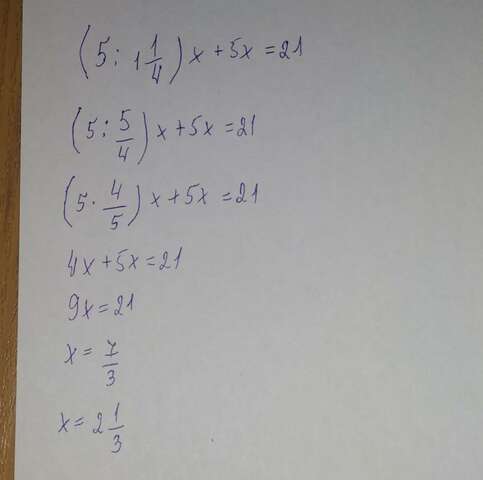 (5 : 1 1/4) x + 5x = 21
(5 : 5/4) x + 5x = 21
(5 · 4/5) x + 5x = 21
4x + 5x = 21
9x = 21
x = 7/3
x = 2 1/3